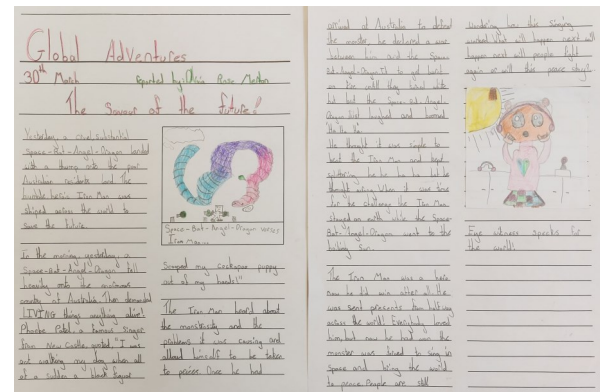 Global Adventures
30th March Reported by: Olivia Rose
The Saviour of the future!
Yesterday, a cruel, substantial
Space-Bat-Angel-Dragon landed
with a thump onto the poor
Australian residents land. The
humble heroic Iron Man was
shiped across the world to
save the future.
In the morning yesterday, a
Space-Bat-Angel-Dragon fell
heavily onto the
country of Australia. Then demanded
LIVING things anything alive!
Phoebe Patel, a famous singer
from New Castle, quoted, "I was
out walking my dog when all
of a sudden a black figure
Space-Bat-Angel-Dragon verses
Iron Man...
Scraped my cockapoo puppy
out of my hands!"
The Iron Man heard about
the monstrosity and the
problems it was causing and
allowed himself to be taken
to peices. Once he had
arrived at Australia to defeat
the monster, he declared a war
between him and the Space-
Bat-Angel-Dragon. to get burnt
on fire until they
but the Space-Bat-Angel-
Dragon just laughed and
He thought it was simple to
beat the Iron Man and kept
he he he he he
thought wrong. When it was time
for the challenge the Iron Man
stayed on earth while the Space-
Bat-Angel-Dragon went to the
boiling Sun.
The Iron Man was a hero
now he did win after all. He
was sent presents from half way
across the world! Everybody loved
him, but now he had won the
monster was forced to sing in
Space and bring the world
to peace. People are still
wondering how this singing
worked. What will happen next will
happen next will people fight
again or will this peace stay?
Eye witness speaks for
the world